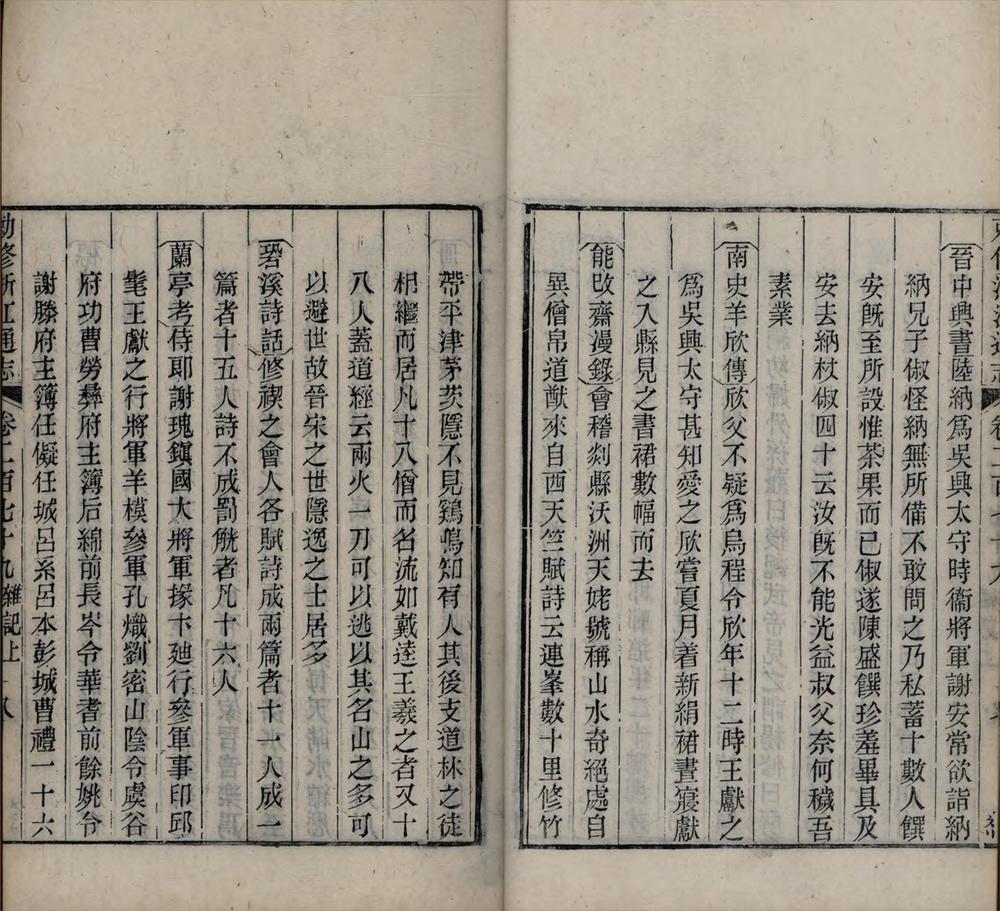 晉中興書陸納爲吳興太守時衞將軍謝安常欲詣納
納兄子俶怪納無所備不敢問之乃私蓄十數人饌
安旣至所設惟茶果而已俶遂陳盛饌珍羞畢具及
安去納杖俶四十云汝旣不能光益叔父奈何穢吾
素業
南史羊欣傳欣父不疑爲烏程令欣年十二時王獻之
爲吳興太守甚知愛之欣嘗夏月着新絹裙晝寢獻
之入縣見之書裙數幅而去
能改齋漫錄會稽剡縣沃洲天姥號稱山水奇絕處自
異僧帛道猷來自西天竺賦詩云連峯數十里修竹
帶平津茅茨隱不見鷄鳴知有人其後支道林之徒
相繼而居凡十八僧而名流如戴逵王羲之者又十
八人蓋道經云兩火一刀可以逃以其名山之多可
以避世故晉宋之世隱逸之士居多
䂬溪詩話修禊之會人各賦詩成兩篇者十一人成一
篇者十五人詩不成罰觥者凡十六人
蘭亭考侍郎謝瑰鎭國大將軍掾卞廸行參軍事印邱
髦王獻之行將軍羊模參軍孔熾劉密山陰令虞谷
府功曹勞彝府主簿后綿前長岑令華耆前餘姚令
謝滕府主簿任儗任城呂系呂本彭城曹禮一十六
勅修浙江通志 卷二百七十九雜記上 十八